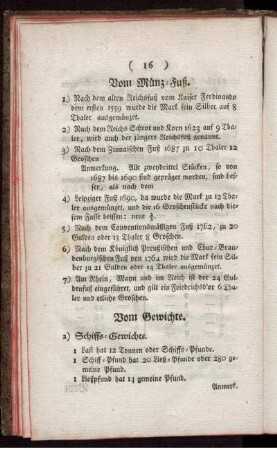 ( 16 )
Vom Münz-Fuß.
1) Nach dem alten Reichsfuß vom Kaiser Ferdinando
dem ersten 1559 wurde die Mark fein Silber auf 8
Thaler ausgemünzet.
2) Nach dem Reichs Schrot und Korn 1623 auf 9 Tha-
ler, wird auch der jüngere Reichsfuß genannt.
3) Nach dem Zinnaischen Fuß 1687 zu 10 Thaler 12
Groschen
Anmerkung. Alle zweydrittel Stücken, so von
1687 bis 1690 sind gepräget worden, sind bes-
ser, als nach dem
4) Leipziger Fuß 1690, da wurde die Mark zu 12 Tha-
ler ausgemünzet, und die 16 Groschenstücke nach die-
sem Fusse heissen: neue ⅔.
5) Nach dem Conventionsmäßigen Fuß 1762, zu 20
Gulden oder 13 Thaler 8 Groschen.
6) Nach dem Königlich Preußischen und Chur-Bran-
denburgischen Fuß von 1764 wird die Mark fein Sil-
ber zu 21 Gulden oder 14 Thaler ausgemünzet.
7) Am Rhein, Mayn und im Reich ist der 24 Gul-
denfuß eingeführet, und gilt ein Friedrichsd'or 6 Tha-
ler und etliche Groschen.
Vom Gewichte.
a) Schiffs-Gewichte.
1 Last hat 12 Tonnen oder Schiffs-Pfunde.
1 Schiff-Pfund hat 20 Ließ-Pfunde oder 280 ge-
meine Pfund.
1 Ließpfund hat 14 gemeine Pfund.
Anmerk.